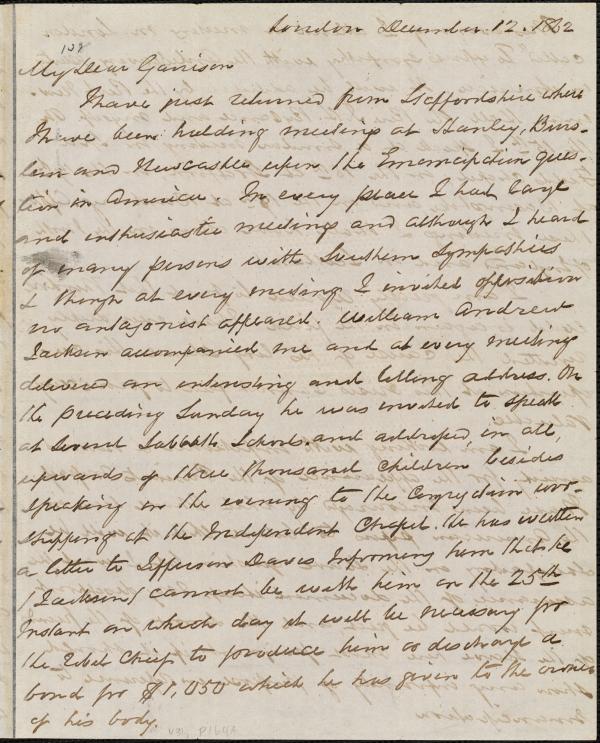 London December 12. 1862
108
My Dear Garrison
I have just returned from Staffordshire where
I have been holding meetings at Hanley, Burs-
lem and Newcastle upon the Emancipation ques-
tion in America. In every place I had large
and enthusiastic meetings and although I heard
of many persons with Southern Sympathies
& though at every meeting I invited opposition
no antagonist appeared. William Andrew
Jackson accompanied me and at every meeting
delivered an interesting and telling address. On
the preceding Sunday he was invited to speak
at several Sabbath Schools. and addressed, in all,
upwards of three thousand children besides
speaking in the evening to the Congregation wor-
shipping at the Independent Chapel. He has written
a letter to Jefferson Davis informing him that he
(Jackson) cannot be with him on the 25th
Instant on which day it will be necessary for
the Rebel Chief to produce him or discharge a
bond for $1,050 which he has given to the owner
of his body.